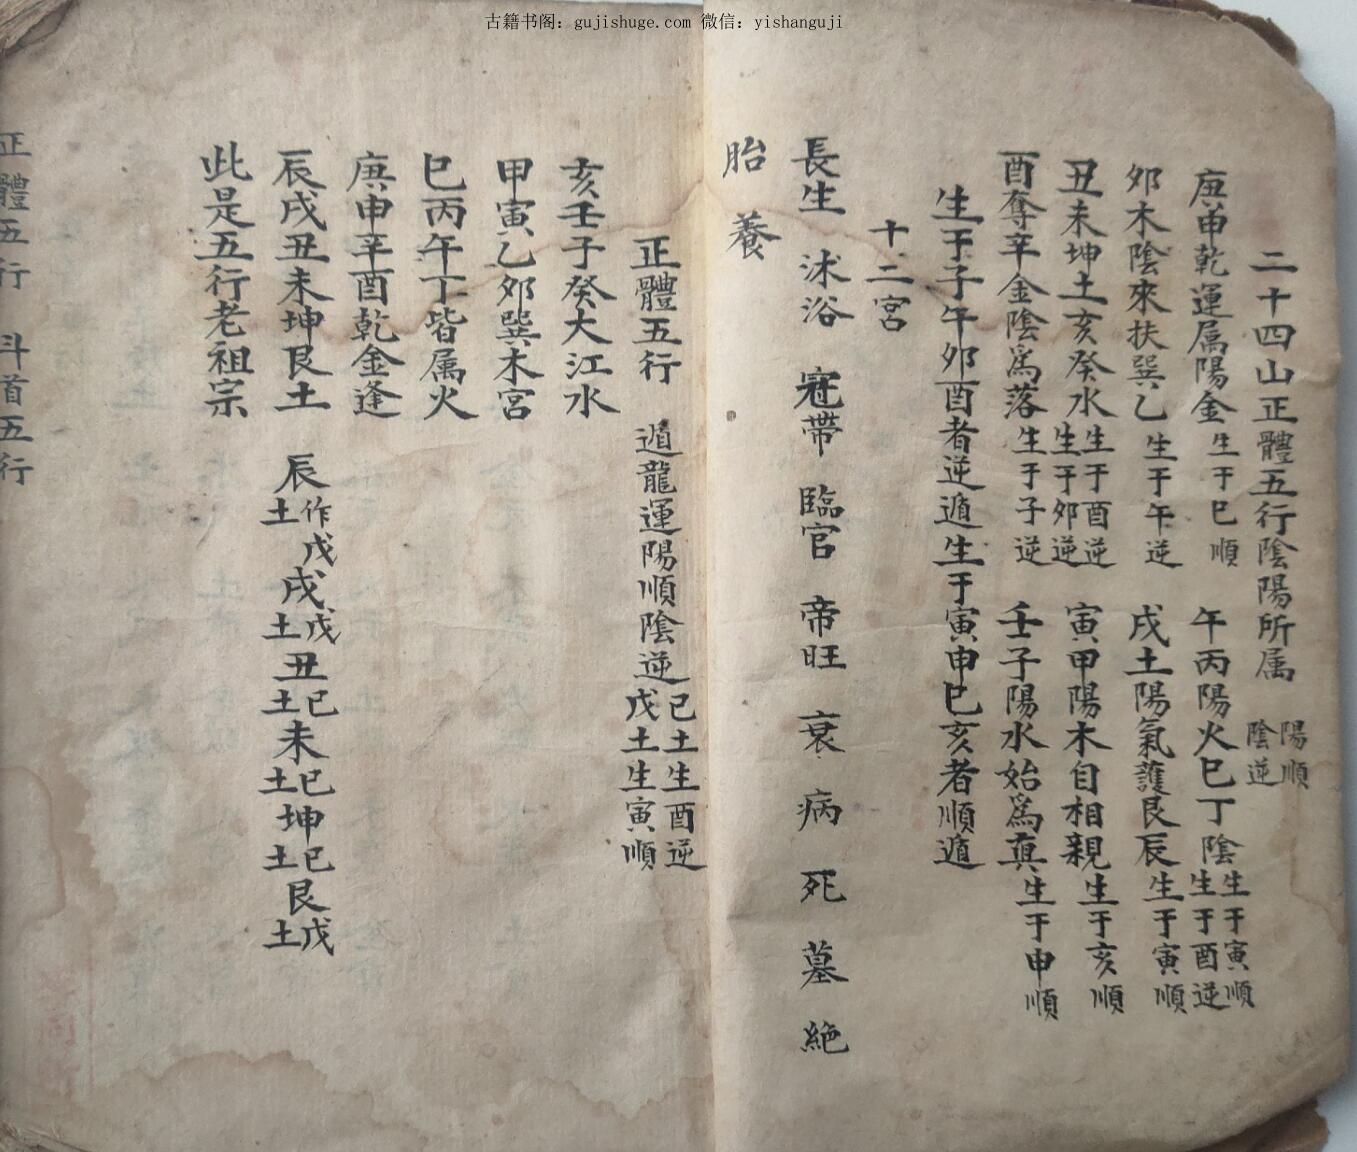 古籍书阁：gujishuge.com 微信：yishanguji
二十四山正體五行陰陽所属 陽順 陰逆
庚申乾運属陽金 生于巳順 午丙陽火巳丁陰 生于寅順 生于酉逆
夘木陰來扶巽乙 生于午逆 戌土陽氣護艮辰 生于寅順
丑未坤土亥癸水 生于酉逆 生于夘逆 寅甲陽木自相親 生于亥順
酉奪辛金陰爲落 生于子逆 壬子陽水始爲真 生于申順
生于子午夘酉者逆遁生于寅申巳亥者順遁
十二宮
長生 沭浴 冠帶 臨官 帝旺 衰 病 死 墓 絶
胎 養
正體五行 遁龍運陽順陰逆 己土生酉逆 戊土生寅順
亥壬子癸大江水
甲寅乙夘巽木宮
巳丙午丁皆属火
庚申辛酉乾金逢
辰戌丑未坤艮土 辰 作戊土 戌 戊土 丑 己土 未 己土 坤 己土 艮 戊土
此是五行老祖宗
正體五行 斗首五行